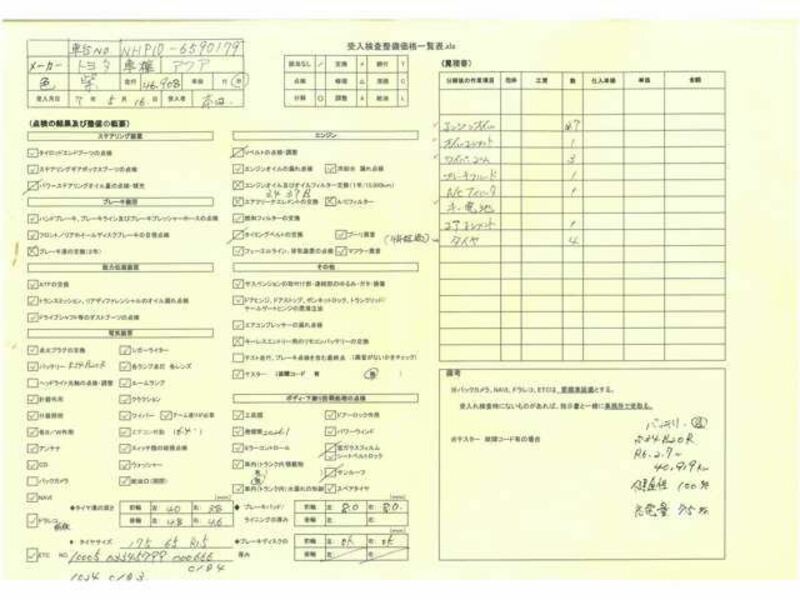 受入検査整備価格一覧表.xls
車台NO NHP10-6590179
メーカー トヨタ 車種 アクア
色 紫 走行 46,908 車検 付
受入月日 7年 5月 16日 受入者
該当なし / 交換 × 締付 T
点検 レ 修理 △ 清掃 C
分解 ○ 調整 A 給油 L
(点検の結果及び整備の概要)
ステアリング装置
タイロッドエンドブーツの点検
ステアリングギアボックスブーツの点検
パワーステアリングオイル量の点検・補充
ブレーキ装置
ハンドブレーキ、ブレーキライン及びブレーキプレッシャーホースの点検
フロント/リアホイールディスクブレーキの目視点検
ブレーキ液の交換(2年)
動力伝達装置
ATFの交換
トランスミッション、リアディファレンシャルのオイル漏れ点検
ドライブシャフト等のダストブーツの点検
電気装置
点火プラグの交換 シガーライター
バッテリー S34B20R 各ランプ点灯 各レンズ
ヘッドライト光軸の点検・調整 ルームランプ
計器作用 クラクション
灯器照射 ワイパー アーム塗りが必要
各S/W作用 エアコン作動
アンテナ スイッチ類の照明点検
CD ウォッシャー
バックカメラ 給油口(開閉)
NAVI (mm)
ドラレコ 前後
◆タイヤ溝の深さ 前輪 左 40 右 38
後輪 左 48 右 46
◆タイヤサイズ 175 65 R15
ETC NO.
エンジン
Vベルトの点検・調整
エンジンオイルの漏れ点検 冷却水 漏れ点検
エンジンオイル及びオイルフィルター交換(1年/15,000km)
エアクリーナエレメントの交換 A/Cフィルター
燃料フィルターの交換
タイミングベルトの交換 プーリ異音
フューエルライン、排気装置の点検 マフラー異音
その他
サスペンションの取付け部・連結部のゆるみ・ガタ・損傷
ドアヒンジ、ドアストップ、ボンネットロック、トランクリッド/
テールゲートヒンジの潤滑注油
エアコンプレッサーの漏れ点検
キーレスエントリー用のリモコンバッテリーの交換
テスト走行、ブレーキ点検を含む最終点 (異音がないかをチェック)
テスター (故障コード 有 無)
ボディ・下廻り防錆処理の点検
工具類 ドアーロック作用
発煙筒 パワーウインド
ミラーコントロール 窓ガラスフィルム
シートベルトロック
車内(トランク内)積載物
有 無 サンルーフ
車内(トランク内)水漏れの形跡 スペアタイヤ
(mm)
◆ブレーキパッド/
ライニングの厚み 前輪 左 80 右 80
後輪 左 右
◆ブレーキディスクの
厚み 前輪 左 ok 右 ok
後輪 左 右
(見積書)
分解後の作業項目 他体 工賃 数 仕入単価 単価 金額
エンジンオイル
オイルエレメント 1
ワイパーゴム 3
ブレーキフルード 1
A/Cフィルター 1
キー電池
エアエレメント 1
タイヤ 4
備考
※バックカメラ、NAVI、ドラレコ、ETCは、要標準装備とする。
受入れ検査時にないものがあれば、指示書と一緒に業務所で受取る。
※テスター 故障コード有の場合
バッテリー
S34B20R
R6.2.7
40,919km
健全性 100%
充電量 75%